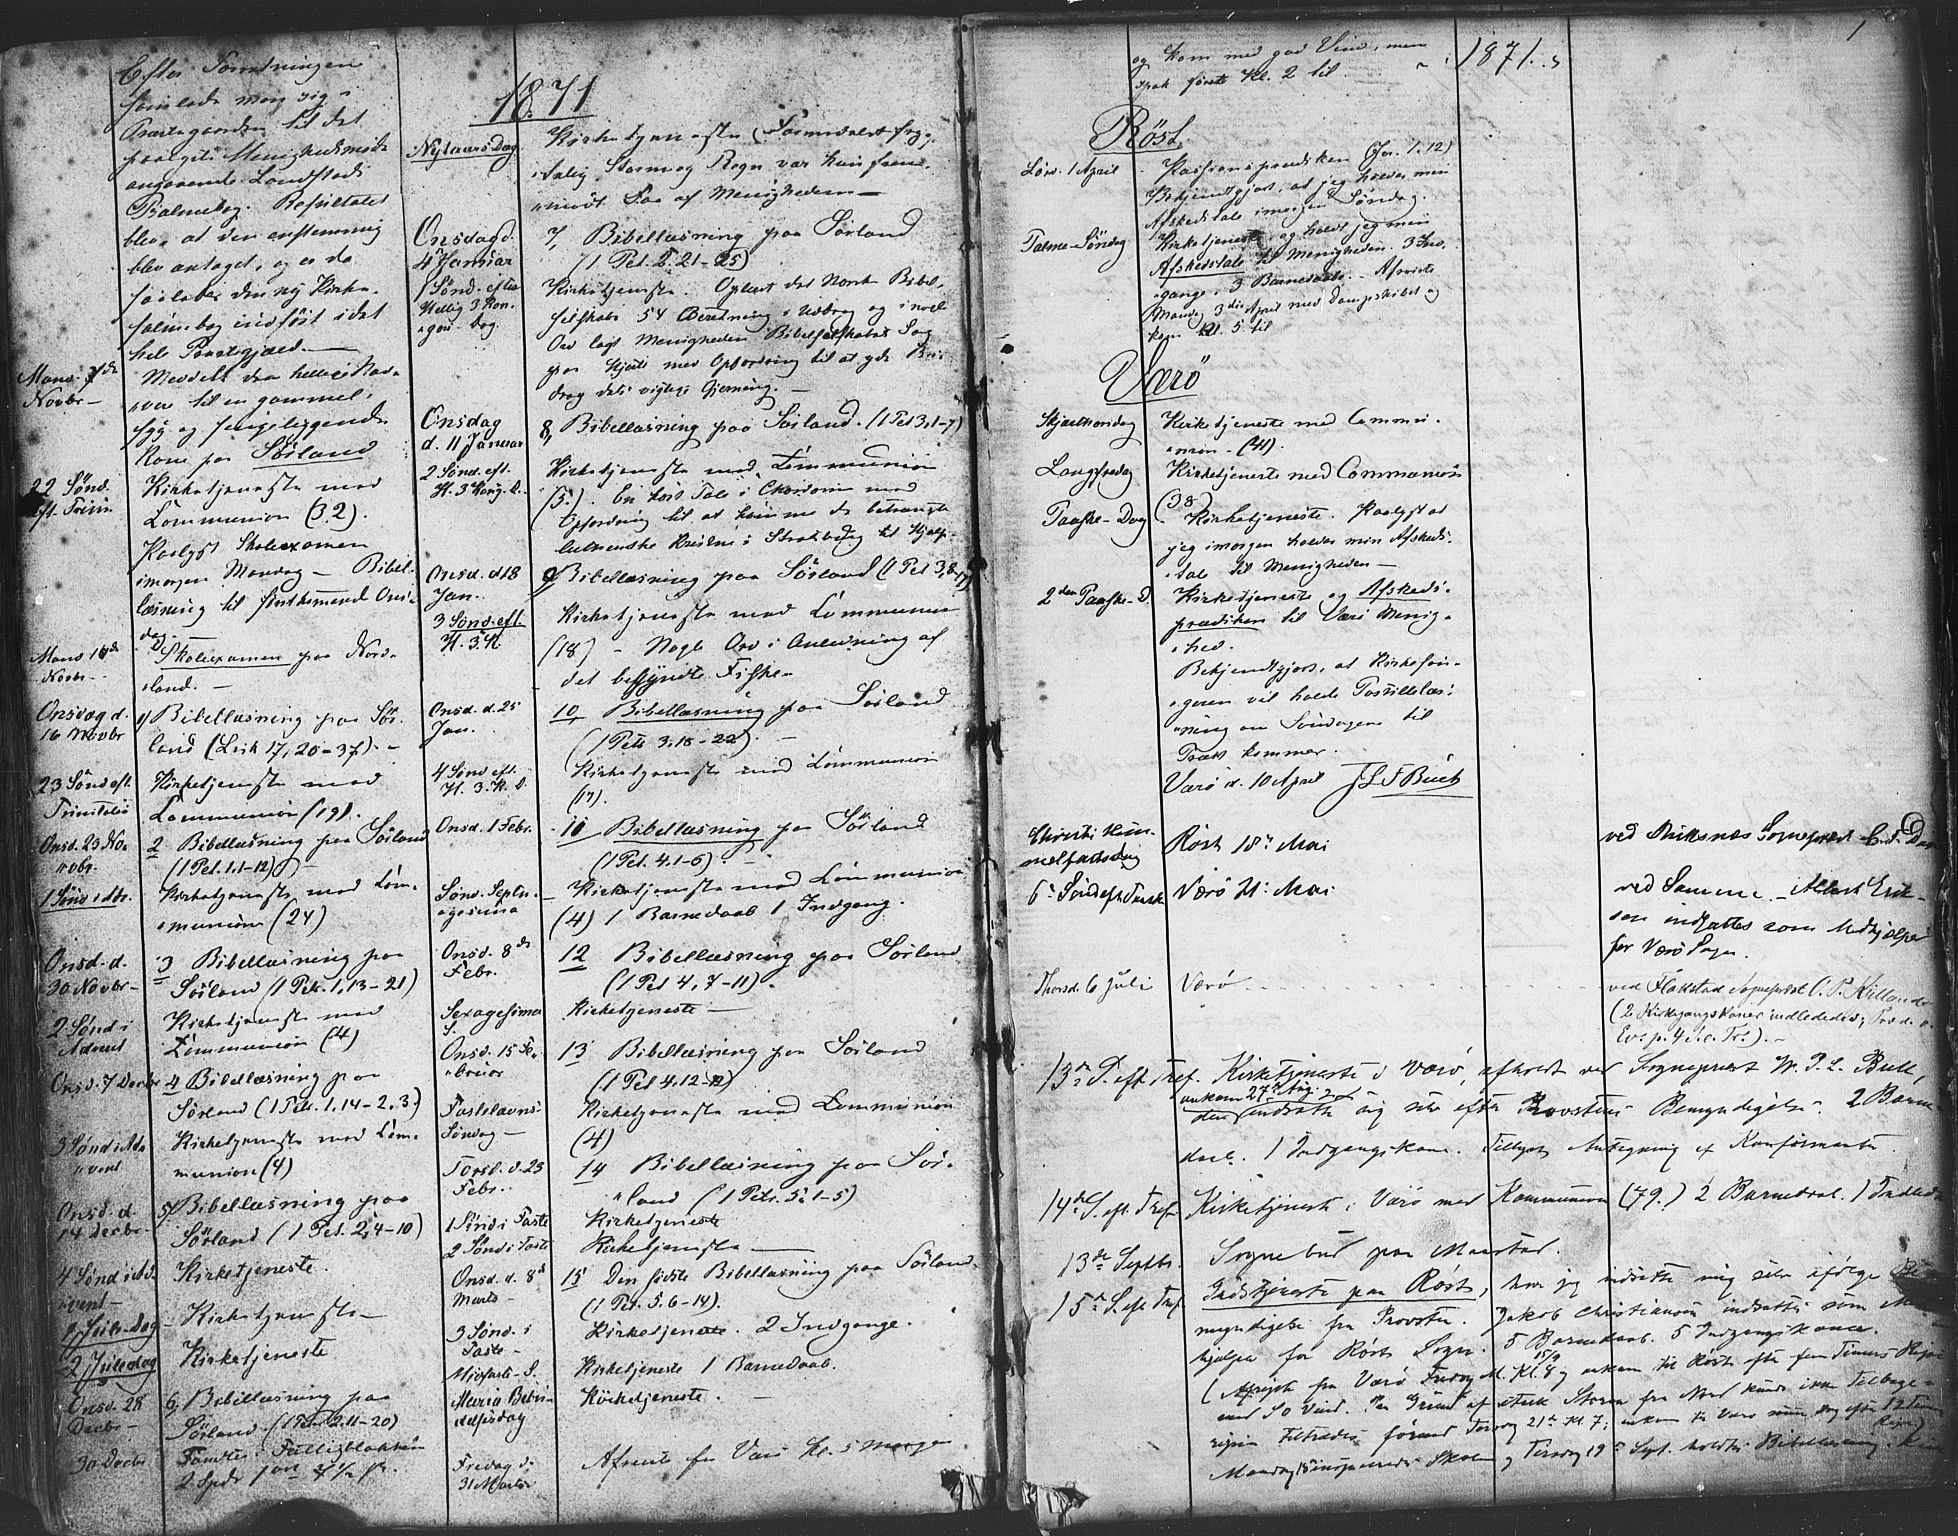 Efter Forretningen
samlede mig sig i
Præstegaarden til det
paagite Menighedsmøde
angaaende Landstads
Psalmebog. Resultatet
blev, at den enstemmig
blev antaget, og er da
saaledes den ny Kirke-
salmebog indført i det
hele Præstegjæld.
Mand. 7de Novbr - Meddelt den hellige Nad-
vere til en gammel,
syg og sengeliggende
Kone paa Sörland
22 Sönd. eft. Trinit. Kirketjeneste med
Communion (32).
Paalyst Skoleexamen
imorgen Mandag - Bibel-
læsning til förstkommend Ons-
dag.
Mand 14de Novbr. Skoleexamen paa Nord-
land. -
Onsdag d. 16 Novbr 1) Bibellæsning paa Sör-
land (Luk 17, 20-37). -
23 Sönd eft. Trinitatis Kirketjeneste med
Communion (19).
Onsd. 23 No-vbr. 2 Bibellæsning paa Sörland
(1 Pet. 1.1-12)
1 Sönd i Adv. Kirketjeneste med Com-
munion (24)
Onsd. d. 30 Novbr - 3 Bibellæsning paa
Sörland (1 Petr. 1, 13-21)
2 Sönd i Advent Kirketjeneste med
Communion (4)
Onsd. 7 Decbr 4 Bibellæsning paa
Sörland (1 Petr. 1, 14-2, 3.)
3 Sönd i Ad-vent Kirketjeneste med Com-
munion (4)
Onsd. d. 14 Decbr - 5) Bibellæsning paa
Sörland (1 Pet. 2, 4-10)
4 Sönd i Ad-vent - Kirketjeneste.
1 Jule-Dag Kirketjeneste -
2 Juledag Kirketjeneste
Onsd. 28 Decbr - 6, Bibellæsning paa
Sörland. (1 Petr 2.11-20)
30 Decbr Fattigblokken
2 Spdr
1871
Nytaarsdag Kirketjeneste
Storm og Regn var kun frem-
mödt Faa af Menigheden -
Onsdag d. 4 Januar 7, Bibellæsning paa Sörland
(1 Pet. 2. 21-25)
1 Sönd. efter Hellig 3 Kon-ger-dag. Kirketjeneste. Oplæst det Norske Bibel-
selskabs 54 Beretning i Uddrag og i nogle
Ord lagt Menigheden Bibelselskabets Sag
paa Hjerte med Opfordring til at yde Bi-
drag dets vigtige Gjerning. -
Onsdag d. 11 Januar 8, Bibellæsning paa Sörland. (1 Pet 3, 1-7)
2 Sönd. eft. H. 3 Kong. D. Kirketjeneste med Communion
(5). En kort Tale i Chordören med
Opfordring til at komme de betrængte
lutherske Kristne i Strasburg til Hjælp.
Onsd. d 18 Jan. 9, Bibellæsning paa Sörland (1 Pet 3, 8-17)
3 Sönd. eft. H. 3. K Kirketjeneste med Communion
(18) - Nogle Ord i Anledning af
det begyndte Fiske.
Onsd. d. 25 Jan. 10, Bibellæsning paa Sörland
(1 Petr 3.18-22). -
4 Sönd eft. H. 3. K. D. Kirketjeneste med Communion
(17).
Onsd. 1 Febr. 11 Bibellæsning paa Sörland
(1 Pet. 4. 1-6). -
Sönd. Septu-agesima Kirketjeneste med Communion
(4) 1 Barnedaab 1 Indgang.
Onsd. 8de Febr. 12 Bibellæsning paa Sörland
(1 Pet 4, 7-11).
Sexagesima S. Kirketjeneste -
Onsd. 15 Fe-bruar 13 Bibellæsning paa Sörland
(1 Pet 4.12-19)
Fastelavns-Söndag - Kirketjeneste med Communion
(4)
Torsd. d. 23 Febr. 14 Bibellæsning paa Sör-
land (1 Petr. 5. 1-5)
1 Sönd i Faste Kirketjeneste
2 Sönd i Faste Kirketjeneste
Onsd. d. 8de Marts - 15 Den sidste Bibellæsning paa Sörland.
(1 Pet. 5. 6-14).
3 Sönd. i Faste - Kirketjeneste. 2 Indgange.
Midfaste-S. Kirketjeneste 1 Barnedaab.
Maria Bebu-delsesdag Kirketjeneste.
Fredag d. 31 Marts Afreiste fra Værö Kl. 5 Morgen
1
og kom med god Vind, men
spak först Kl. 2 til.
1871.
Röst.
Lörd. 1 April Passionspræediken
Bekjendtgjort, at jeg holder min
Afskedstale imorgen Söndag.
Palme-Söndag Kirketjeneste og holdt jeg min
Afskedstale til Menigheden. 3 Ind-
gange, 3 Barnedaab. - Afreiste
Mandag 3die April med Dampskibet og
kom Kl. 5 til
Værö
Skjærtorsdag Kirketjeneste med Commu-
nion - (41).
Langfredag Kirketjeneste med Communion
(38)
Paaske-Dag Kirketjeneste. Paalyst at
jeg imorgen holder min Afskeds-
tale til Menigheden -
2den Paaske-D. Kirketjeneste og Afskeds-
prædiken til Værö Menig-
hed.
Bekjendtgjort, at Kirkesan-
geren vil holde Postillelæs-
ning om Söndagen til
Præst kommer.
Værö d. 10 April
Christi Him-melfartsdag Röst 18de Mai ved Buksnæs Sognepræst
6te Sönd eft Paask Værö 21de Mai ved Samme. - Albert Erik-
sen indsattes som Medhjælper
for Værö Sogn.
Thorsd. 6 Juli Værö ved Flakstad Sognepræst
(2 Kirkegangskoner indlededes; Præd. o.
Ev. p. 4 S. e. Tr.). -
13de S. eft. Tref. Kirketjeneste i Værö, afholdt ved Sognepræst W. T. L. Bull,
ankom 27de Aug.
der indsatte sig selv efter Provstens Bemyndigelse. 2 Barne-
daab. 1 Indgangskone. Tillyst Antegning af Konfirmanter
14de S. eft. Tref. Kirketjeneste i Værö med Kommunion (79.) 2 Barnedaab. 1 Indled
13de Septbr. Sognebud paa Maastad.
15de S. eft. Tref. Gudstjeneste paa Röst, hvor jeg indsatte mig selv ifölge Be-
myndigelse fra Provsten. Jakob Christiansen indsattes som Med-
hjælper for Röst Sogn. 5 Barnedaab. 5 Indgangskoner.
(Afreiste fra Værö Fredag 15/9 Kl. 8 og ankom til Röst efter fem Timers Reise
med SO Vind. Paa Grund af stærk Storm fra Nord kunde ikke Tilbage-
reisen tiltrædes förend Torsdag 21de Kl. 7; ankom til Værö samme Dag efter 12 Timers
Reise)
Mandag 18 inspicerede Skolen og Tirsdag 19de Sept. holdtes Bibellæsning.